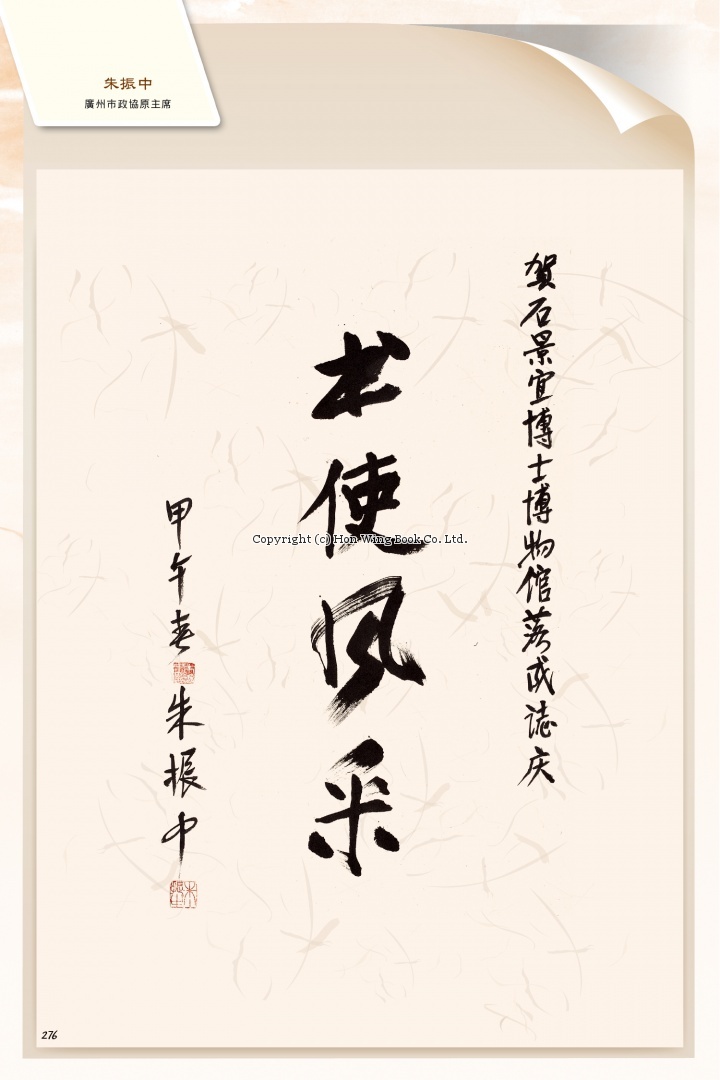 朱振中
廣州市政協原主席
贺石景宜博士博物馆落成誌庆
书使风采
甲午春
朱振中
Copyright (c) Hon Wing Book Co. Ltd.
276